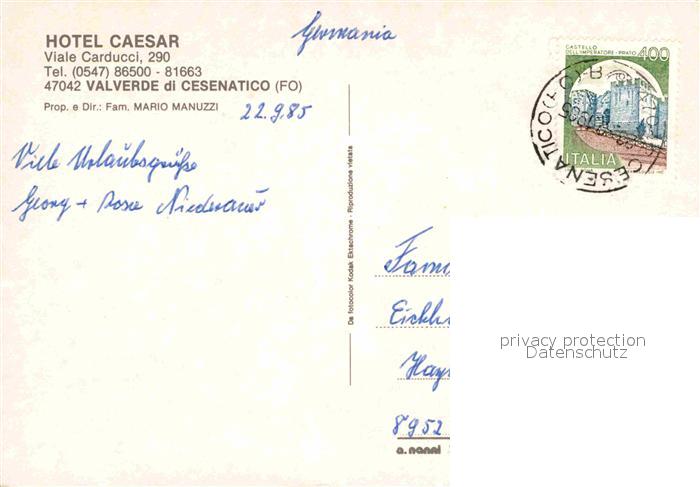 Germania
HOTEL CAESAR
Viale Carducci, 290
Tel. (0547) 86500 - 81663
47042 VALVERDE di CESENATICO (FO)
Prop. e Dir.: Fam. MARIO MANUZZI
22.9.85
Viele Urlaubsgrüße
Georg + Rosie Niederauer
De fotocolor Kodak Ektachrome - Riproduzione vietata
CASTELLO
DELL'IMPERATORE - PRATO 400
ITALIA
CESENATICO (FO)
Fam
Eichh
Hay
8952
a. nanni
privacy protection
Datenschutz